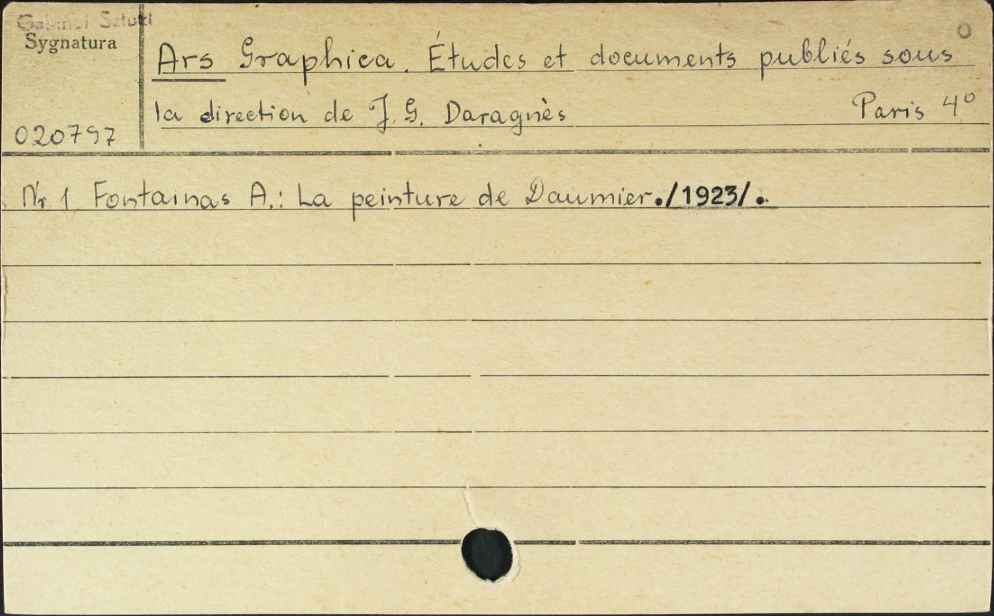 Gabinet Sztuki
Sygnatura
020797
Ars Graphica. Études et documents publiés sous
la direction de J. G. Daragnès Paris 4°
Nr 1 Fontainas A.: La peinture de Daumier./1923/.